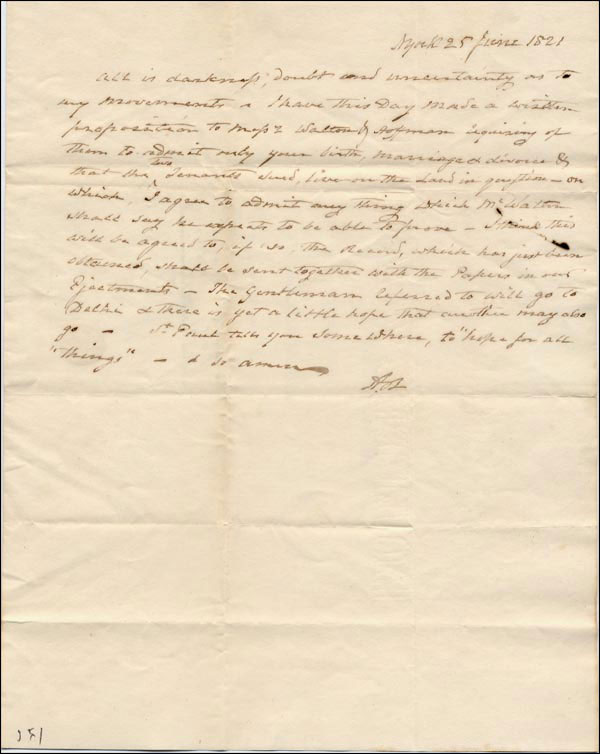 NYork 25 June 1821
All is darkness, doubt and uncertainty as to
my movements – I have this Day made a written
proposition to Messrs Walton & Hofman requiring of
them to admit only your birth, marriage & divorce &
that the two Tenants sued, live on the Land in question – on
which, I agree to admit any thing which Mr Walton
shall say he expects to be able to prove – I think this
will be agreed to; if so, the Record, which has just been
obtained, shall be sent together with the Papers in our
Ejectments – The Gentleman referred to will go to
Delhi & there is yet a little hope that another may also
go – St Paul tells you somewhere, to "hope for all
"things" – & so amen
AB
151